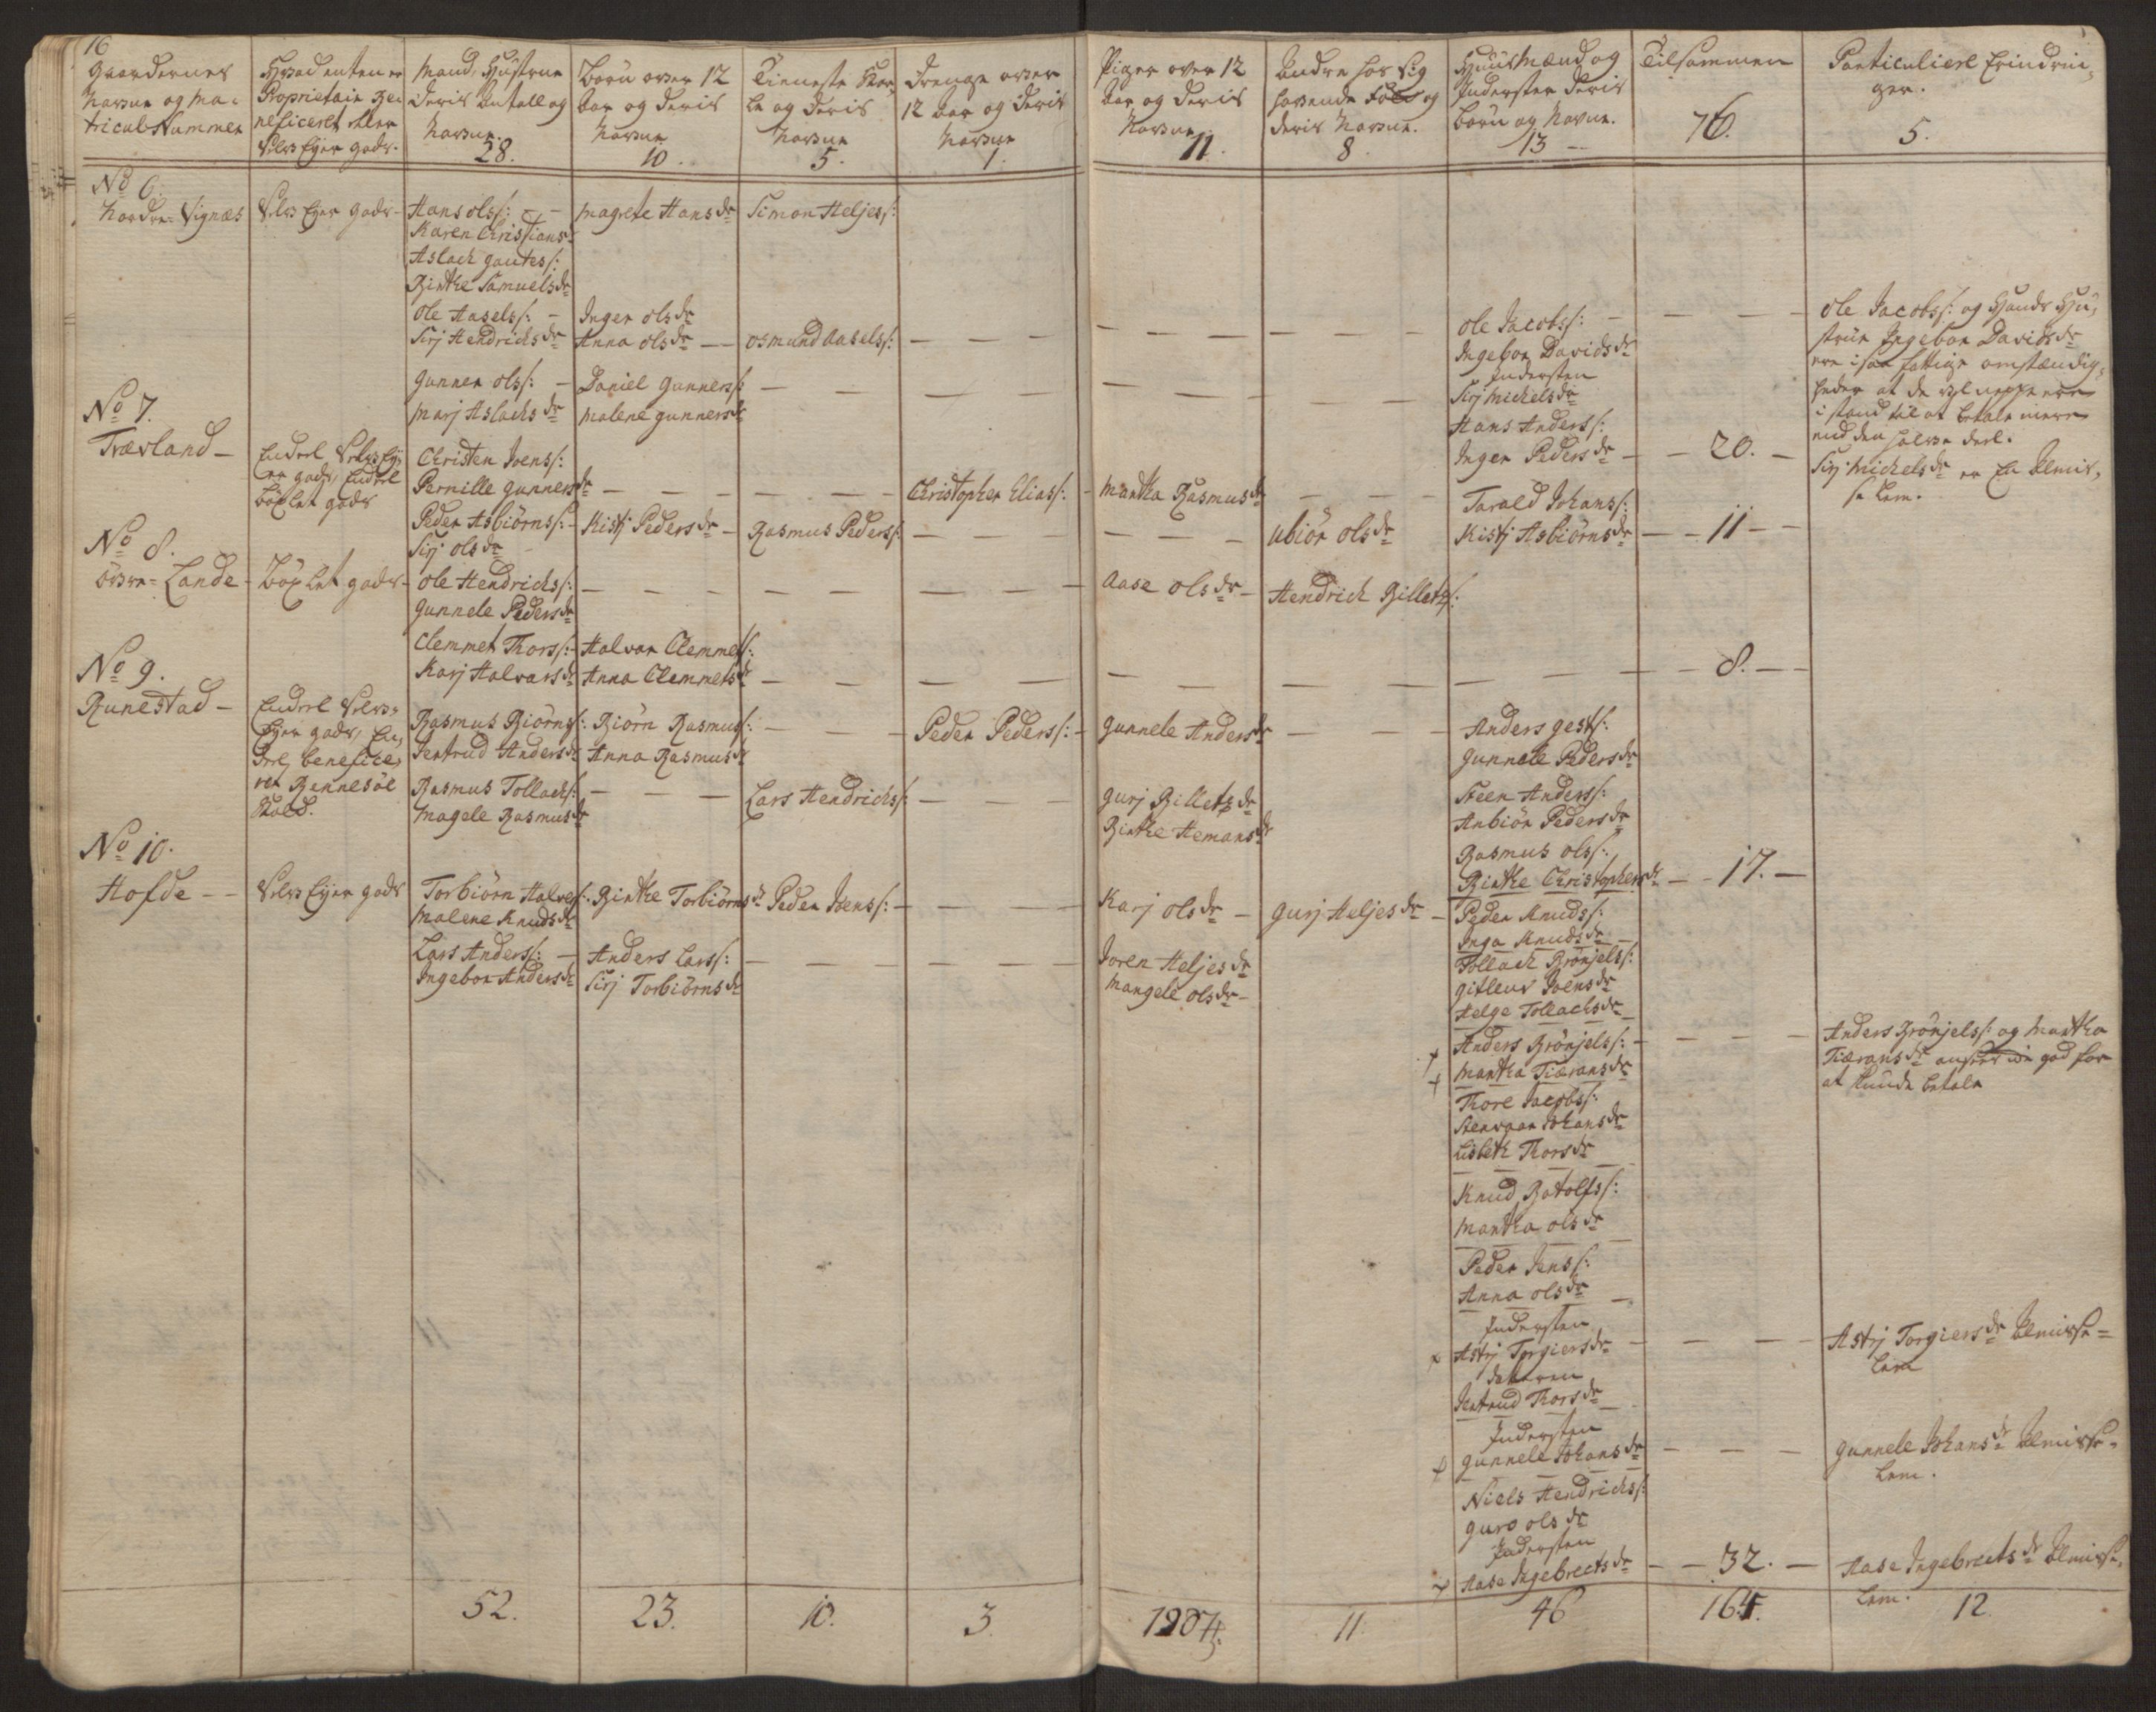 16
Gaardernes
Nafne og Ma-
tricul Nummer
Hvad enten er
Proprietair Be-
neficeret eller
Selv Eyer gods.
Mand, Hustrue
deris Antall og
Nafne.
28.
Børn over 12
Aar og deris
Nafne
10.
Tieneste Kar-
le og deris
Nafne
5.
Drenge over
12 Aar og deris
Nafne
1.
Piger over 12
Aar og deris
Nafne.
11.
Andre hos sig
havende Folk og
deris Nafne.
8.
Huusmænd og
Inderster deris
Børn og Nafne.
13 -
Tilsammen
76.
Particuliere Erindrin-
ger.
5.
No 6.
Nordre-Vignæs
Selv Eyer gods -
Hans Ols/: -
Karen Christians dr
Aslach Gautes/:
Birthe Samuels dr
Ole Aasels/: -
Siri Hendrichs dr
Gunner Ols/: -
Marj Aslachs dr
Magrete Hans dr
Inger Ols dr
Anna Ols dr -
Daniel Gunners/:
Malene Gunners dr
Simon Heljes/:
Osmund Aasels/:
Ole Jacobs/: -
Ingebor Davids dr
Inderster
Siri Michels dr
Hans Anders/:
Inger Peders dr -
20. -
Ole Jacobs/: og Hands Hu-
strue Ingebor Davids dr
ere i saa fattige omstændig-
heder at de vel neppe ere
i stand til at betale mere
end den halve deel.
Siri Michels dr er En Almis-
se Lem.
No 7.
Træland -
Endeel Selv Ey-
er gods, Endeel
Böxlet gods
Christen Joens/:
Pernille Gunners dr
Peder Asbiörns/: -
Siri Ols dr
Kistj Peders dr -
Rasmus Peders/:
Christopher Elias/: -
Martha Rasmus dr
Ubiör Ols dr
Tarald Johans/:
Kistj Asbiörns dr
11 -
No 8.
Övre-Lande -
Böxlet gods -
Ole Hendrichs/:
Gunnele Peders dr
Clemmet Thors/: -
Karj Halvars dr
Halvor Clemmets/:
Anna Clemmets dr
Aase Ols dr -
Hendrich Billets/:
8. -
No 9.
Runestad -
Endeel Selv-
Eyer gods, En-
deel benefice-
ret Rennesöe
Kald.
Rasmus Biörns/:
Jertrud Anders dr
Rasmus Tollachs/:
Magele Rasmus dr
Biörn Rasmus/:
Anna Rasmus dr
Lars Hendrichs/:
Peder Peders/: -
Gunnele Anders dr
Gurj Billets dr
Birthe Hemans dr
Anders Gests/:
Gunnele Peders dr
Steen Anders/:
Anbiör Peders dr
Rasmus Ols/:
Birthe Christophers dr
17. -
No 10.
Hofde -
Selv Eyer gods
Torbiörn Halvors/:
Malene Knuds dr
Lars Anders/: -
Ingebor Anders dr
Birthe Torbiörns dr
Anders Lars/:
Siri Torbiörns dr
Peder Joens/: -
Karj Ols dr -
Joren Heljes dr
Mangele Ols dr -
Gurj Heljes dr -
Peder Knuds/:
Inga Knuds dr
Tollach Brönjels/:
Gitleus Joens dr
Helge Tollachs dr
Anders Brönjels/: -
Martha Tiærans dr
Thore Jacobs/:
Stenvaar Johans dr
Lisbeth Thors dr
Knud Botolfs/:
Martha Ols dr
Peder Jens/:
Anna Ols dr
Inderster
Astrj Torgiers dr
Jertrud Thors dr
Inderster
Gunnele Johans dr
Niels Hendrichs/:
Guro Ols dr
Inderster
Aase Ingebrects dr
32. -
Anders Brönjels/: og Martha
Tiærans dr
at kunde betale
Astrj Torgiers dr Almisse-
Lem
Gunnele Johans dr Almisse-
Lem.
Aase Ingebrects dr Almisse-
Lem.
52.
23.
10.
3.
11.
46
164.
12